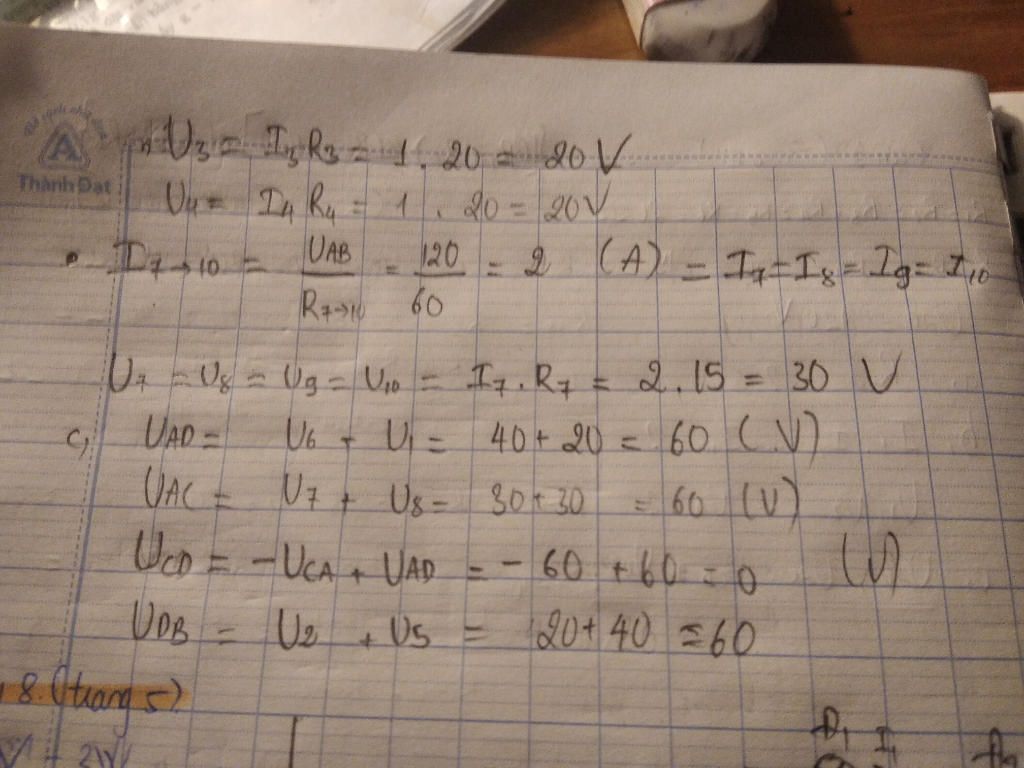 Thành Đạt
U₃ = I₃ R₃ = 1 . 20 = 20 V
U₄ = I₄ R₄ = 1 . 20 = 20V
• I₇→₁₀ = UAB / R₇→₁₀ = 120 / 60 = 2 (A) = I₇ = I₈ = I₉ = I₁₀
U₇ = U₈ = U₉ = U₁₀ = I₇ . R₇ = 2 . 15 = 30 V
c, UAD = U₆ + U₁ = 40 + 20 = 60 (V)
UAC = U₇ + U₈ = 30 + 30 = 60 (V)
UCD = - UCA + UAD = - 60 + 60 = 0 (V)
UDB = U₂ + U₅ = 20 + 40 = 60
8. (trang 5)